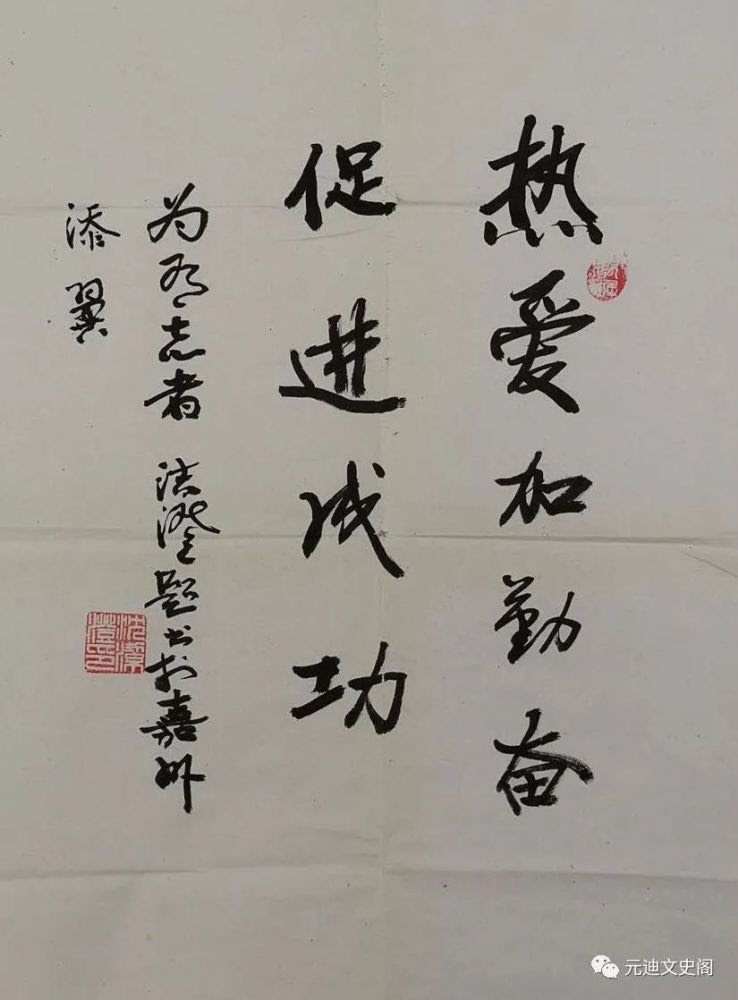 热爱加勤奋
促进成功
为有志者 洁澄题书于嘉
添翼
沈潔
澄印
元迪文史阁